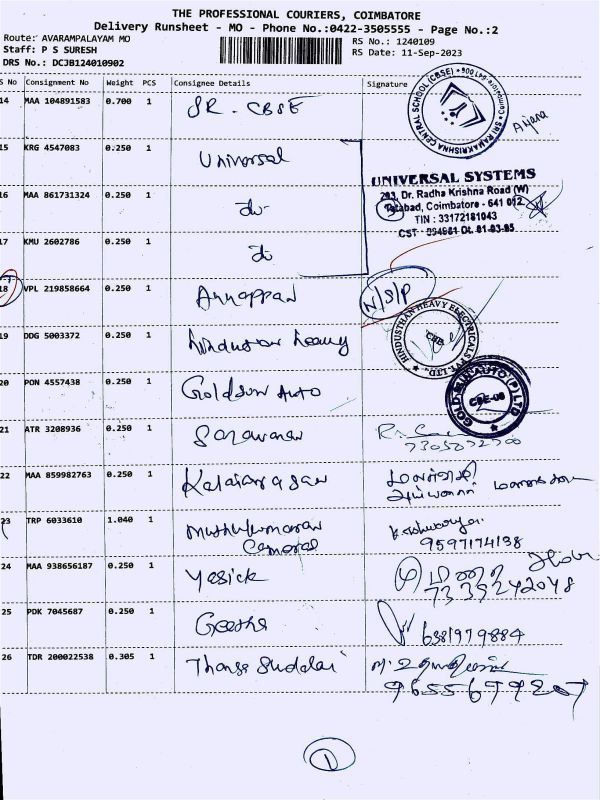 THE PROFESSIONAL COURIERS, COIMBATORE
Delivery Runsheet - MO - Phone No.:0422-3505555 - Page No.:2
Route: AVARAMPALAYAM MO
RS No.: 1240109
Staff: P S SURESH
RS Date: 11-Sep-2023
DRS No.: DCJB124010902
S No Consignment No Weight PCS Consignee Details Signature
14 MAA 104891583 0.700 1 SR. CBSE
SRI RAMAKRISHNA CENTRAL SCHOOL (CBSE)
15 KRG 4547083 0.250 1 Universal
UNIVERSAL SYSTEMS
203, Dr. Radha Krishna Road (W)
Tatabad, Coimbatore - 641 012.
TIN : 33172181043
16 MAA 861731324 0.250 1 do
17 KMU 2602786 0.250 1 do
18 VPL 219858664 0.250 1 Annappan N/S/P
19 DDG 5003372 0.250 1 Hindustan heavy
HINDUSTHAN HEAVY ELECTRICALS PVT. LTD. CBE
20 PON 4557438 0.250 1 Goldsun Auto
GOLD SUN AUTO (P) LTD
21 ATR 3208936 0.250 1 Saravanan
22 MAA 859982763 0.250 1 Kalaiarasan
23 TRP 6033610 1.040 1 Muthukumaran
9597174138
24 MAA 938656187 0.250 1 Yasick
7339242048
25 PDK 7045687 0.250 1 Geetha 6381979884
26 TDR 200022538 0.305 1 Thanga Sudalai
9655679207
1